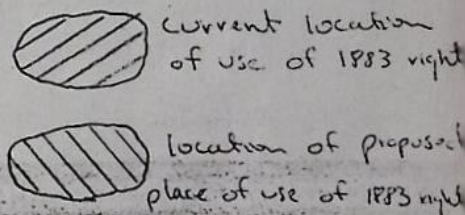 current location
of use of 1883 right
location of proposed
place of use of 1883 right